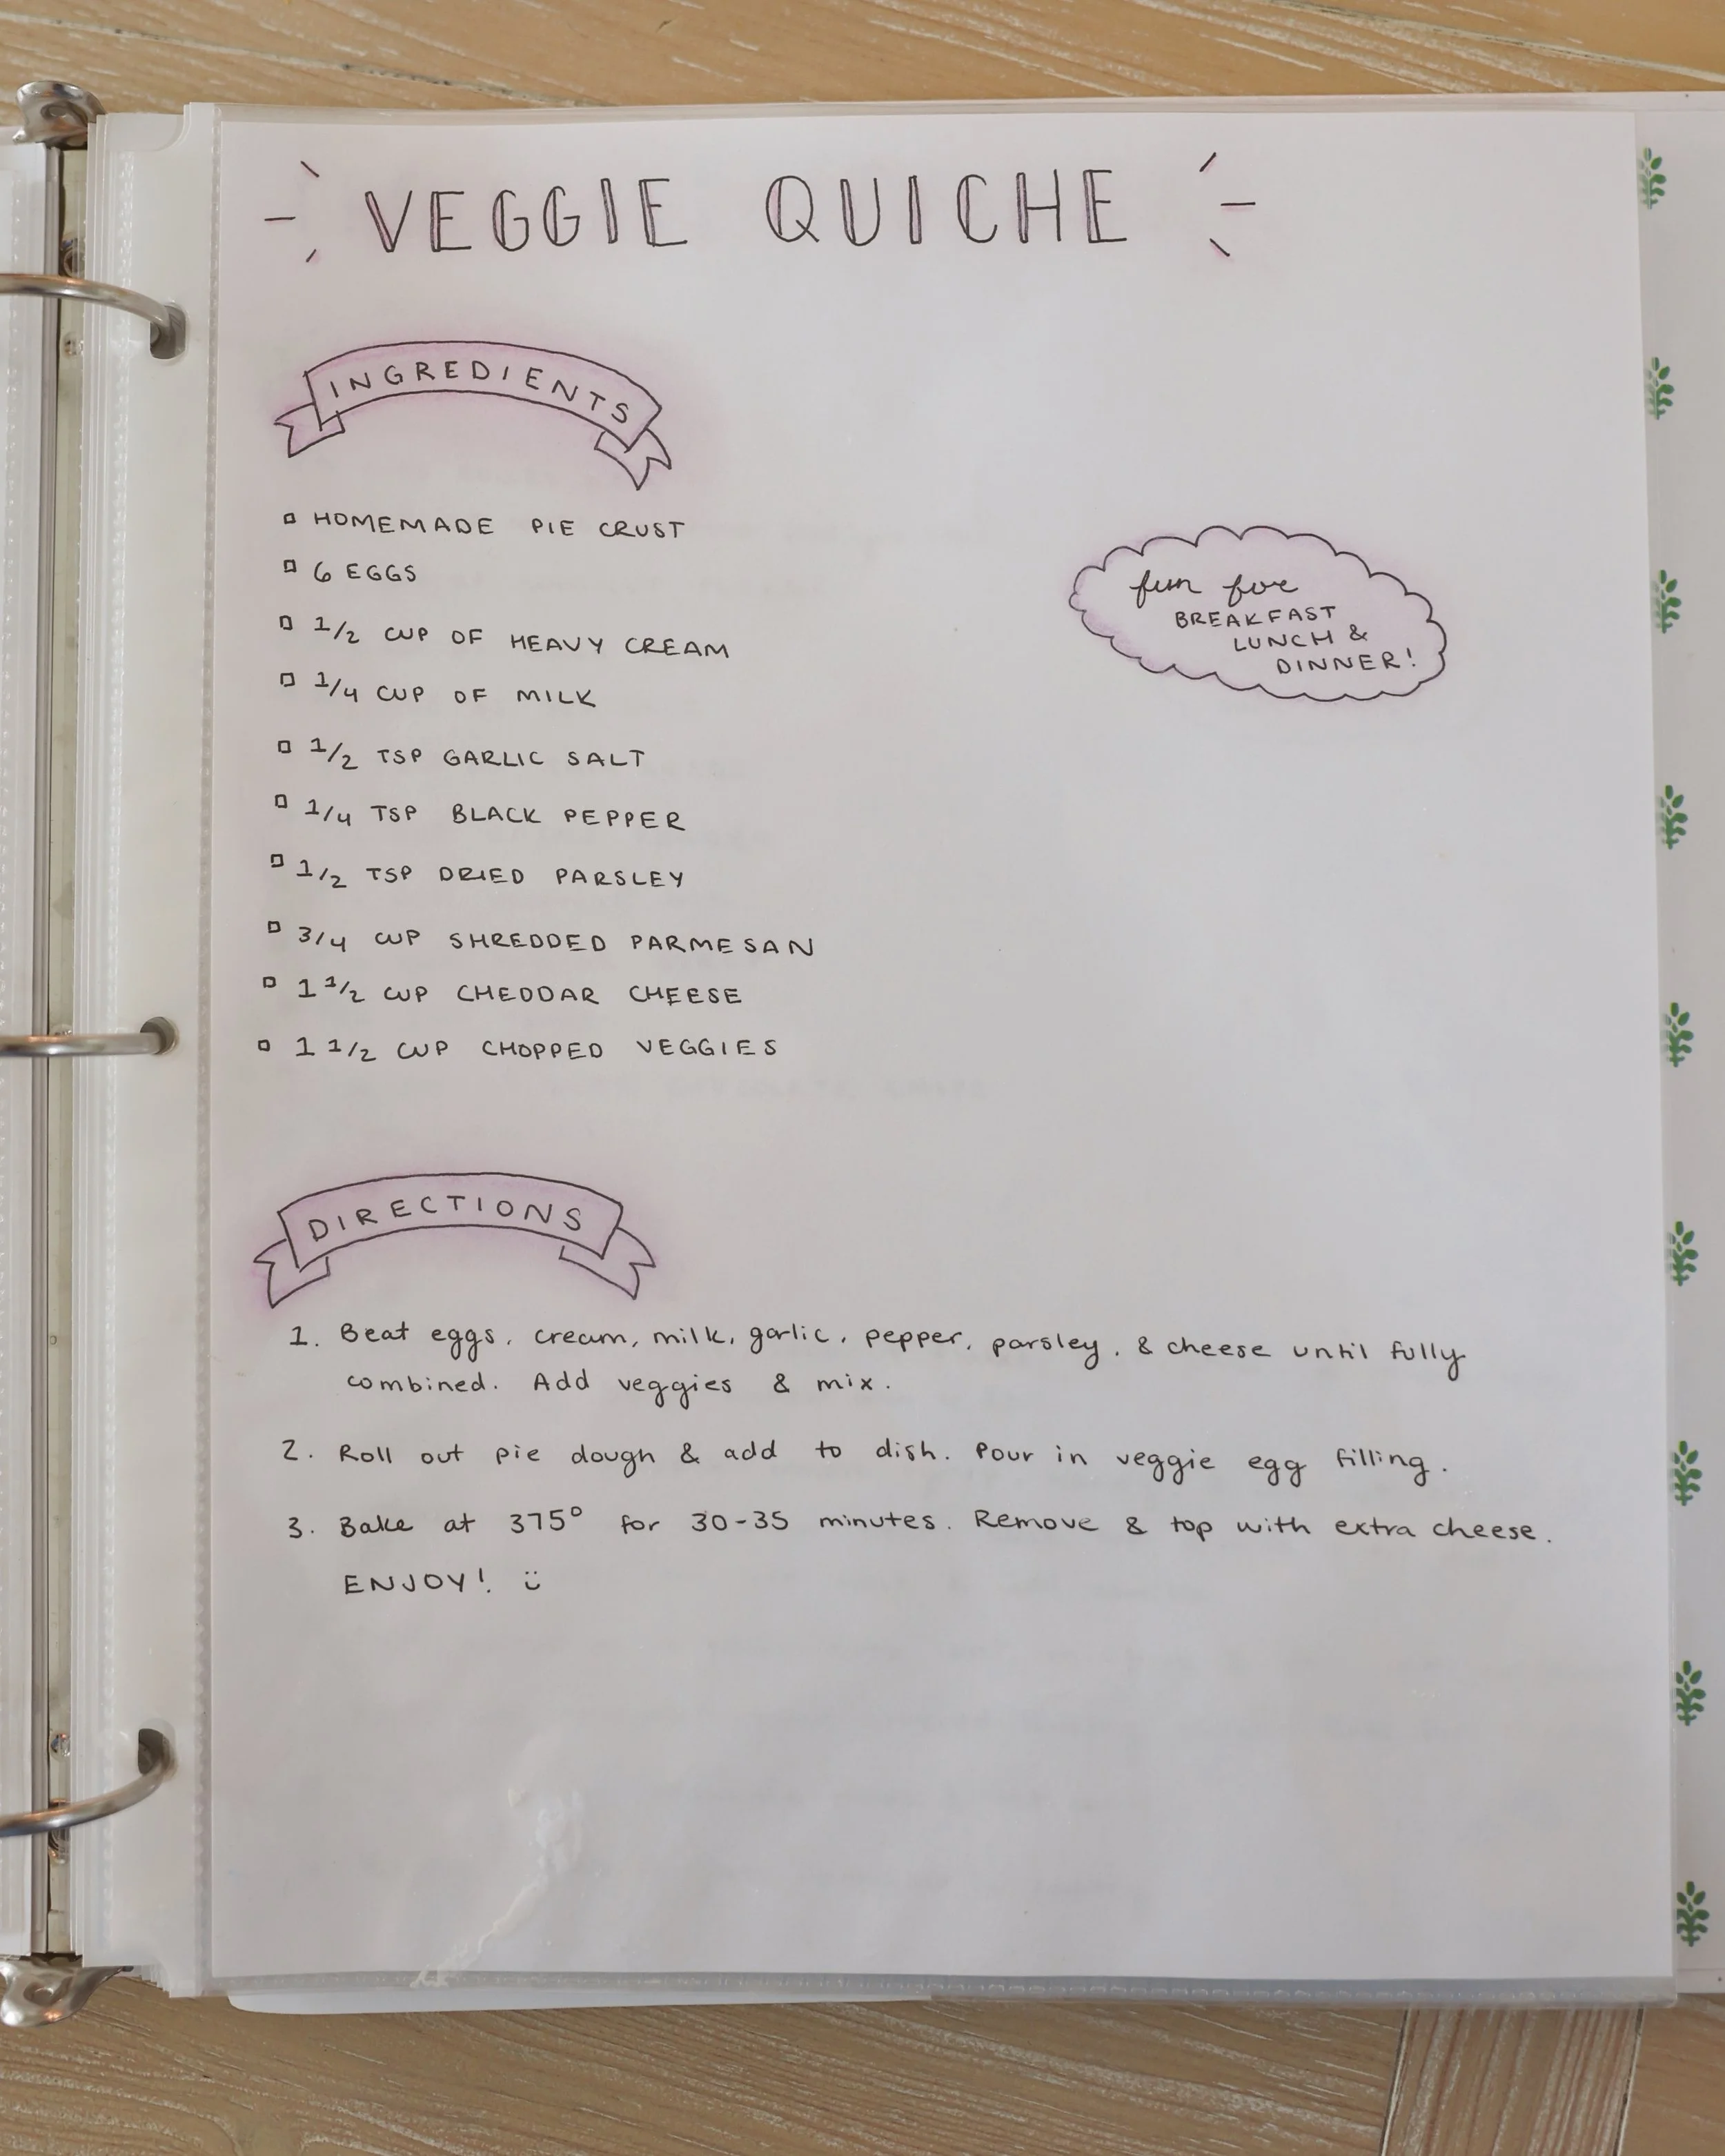 VEGGIE QUICHE
INGREDIENTS
HOMEMADE PIE CRUST
6 EGGS
1/2 CUP OF HEAVY CREAM
1/4 CUP OF MILK
1/2 TSP GARLIC SALT
1/4 TSP BLACK PEPPER
1/2 TSP DRIED PARSLEY
3/4 CUP SHREDDED PARMESAN
1 1/2 CUP CHEDDAR CHEESE
1 1/2 CUP CHOPPED VEGGIES
fun for
BREAKFAST
LUNCH &
DINNER!
DIRECTIONS
1. Beat eggs, cream, milk, garlic, pepper, parsley, & cheese until fully
combined. Add veggies & mix.
2. Roll out pie dough & add to dish. Pour in veggie egg filling.
3. Bake at 375° for 30-35 minutes. Remove & top with extra cheese.
ENJOY! ü